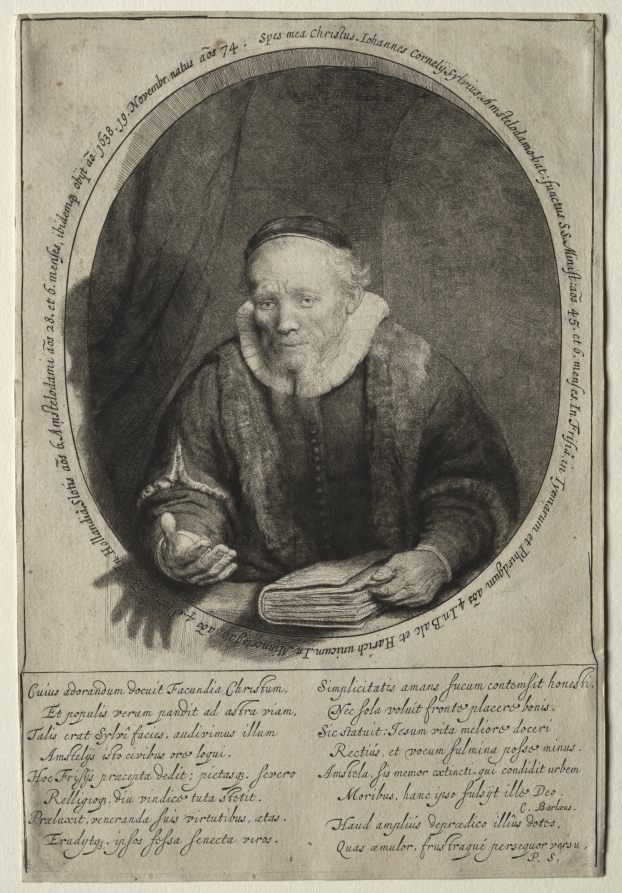 Spes mea Christus. Iohannes Cornelij Sylvius, Amstelodamobat: functus S.S. Minist: aõs 45. et 6. menses. In Frisia in Tyemarum et Phirdgum aõs 4. In Balc et Harich unicum. In Minnertsga aõs 4. In Hollandia Slotis aõs 6. Amstelodami aõs 28. et 6. menses, ibidemq obijt aõ. 1638. 19. Novembr. natus aõs 74.
Cuius adorandum docuit Facundia Christum,
Et populis veram pandit ad astra viam,
Talis erat Sylvî facies. audivimus illum
Amstelijs isto civibus ore loqui.
Hoc Frisijs præcepta dedit; pietasq. severo
Relligioq. diu vindice tuta stetit.
Præluxit, veneranda suis virtutibus, ætas.
Erudijtq. ipsos fessa senecta viros.
Simplicitatis amans fucum contemsit honesti,
Nec sola voluit fronte placere bonis.
Sic statuit: Iesum vita meliore doceri
Rectiùs, et vocum fulmina posse minus.
Amstela, sis memor extincti qui condidit urbem
Moribus, hanc ipso fulsijt ille Deo.
C. Barlæus.
Haud amplius deprædico illius dotes,
Quas æmulor, frustraque persequor versu.
P. S.